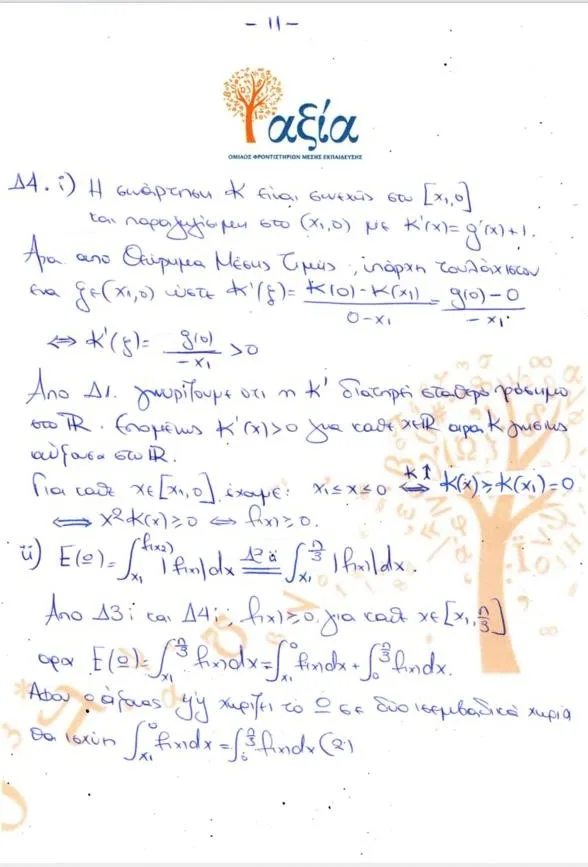 - 11 -
αξία
ΟΜΙΛΟΣ ΦΡΟΝΤΙΣΤΗΡΙΩΝ ΜΕΣΗΣ ΕΚΠΑΙΔΕΥΣΗΣ
Δ4. i) Η συνάρτηση K είναι συνεχής στο [x₁,0]
και παραγωγίσιμη στο (x₁,0) με K'(x)= g'(x)+1.
Άρα από Θεώρημα Μέσης Τιμής, υπάρχει τουλάχιστον
ένα ξ∈(x₁,0) ώστε K'(ξ)= (K(0)-K(x₁))/(0-x₁) = (g(0)-0)/(-x₁)
⇔ K'(ξ)= g(0)/(-x₁) >0
Από Δ1. γνωρίζουμε ότι η K' διατηρεί σταθερό πρόσημο
στο ℝ. Επομένως K'(x)>0 για κάθε x∈ℝ άρα K γνησίως
αύξουσα στο ℝ.
Για κάθε x∈[x₁,0] έχουμε: x₁≤x≤0 ⇔ K↑ K(x)≥K(x₁)=0
⇔ x²K(x)≥0 ⇔ f(x)≥0.
ii) E(Ω)= ∫_{x₁}^{f(x₂)} |f(x)|dx = ∫_{x₁}^{π/3} |f(x)|dx.
Από Δ3i και Δ4i, f(x)≥0 για κάθε x∈[x₁,π/3]
άρα E(Ω)= ∫_{x₁}^{π/3} f(x)dx = ∫_{x₁}^{0} f(x)dx + ∫_{0}^{π/3} f(x)dx.
Αφού ο άξονας y'y χωρίζει το Ω σε δύο ισεμβαδικά χωρία
θα ισχύει ∫_{x₁}^{0} f(x)dx = ∫_{0}^{π/3} f(x)dx (2)